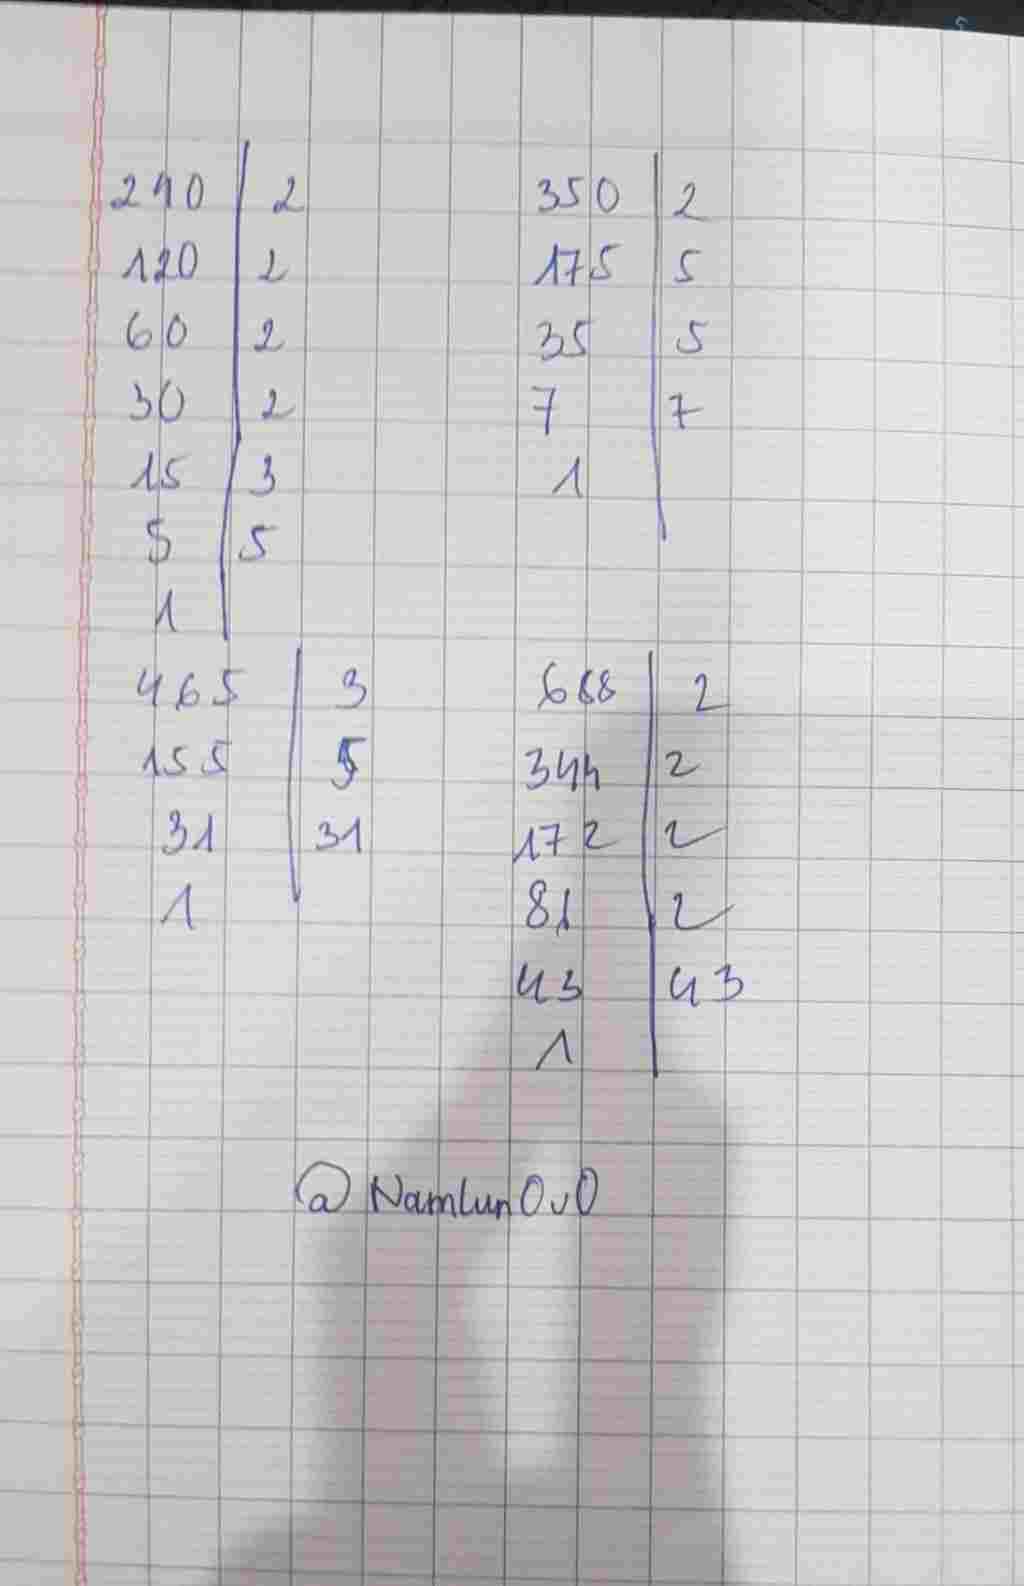 240 | 2
120 | 2
60 | 2
30 | 2
15 | 3
5 | 5
1
350 | 2
175 | 5
35 | 5
7 | 7
1
465 | 3
155 | 5
31 | 31
1
688 | 2
344 | 2
172 | 2
| 2
43 | 43
1
@ Namlun0v0